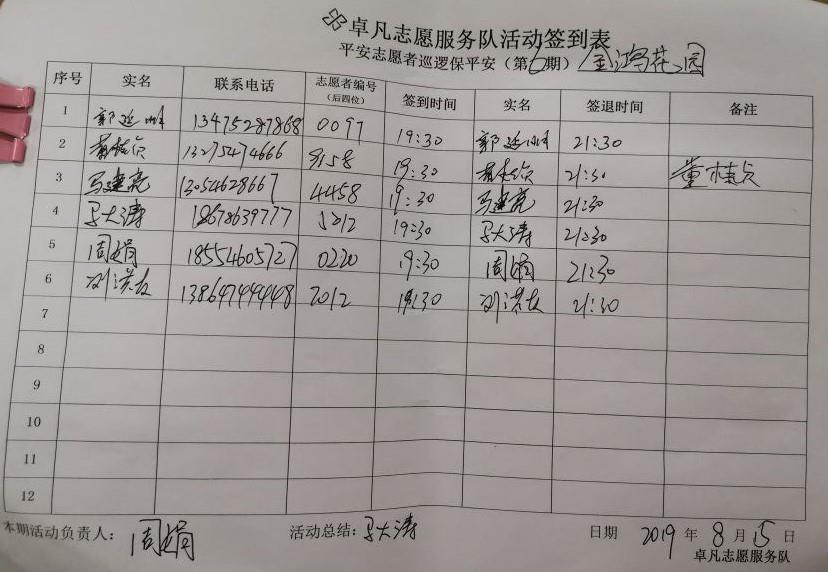 卓凡志愿服务队活动签到表
平安志愿者巡逻保平安（第6期）金鸿花园
序号 实名 联系电话 志愿者编号（后四位） 签到时间 实名 签退时间 备注
1 郭延 13475287868 0097 19:30 郭延 21:30
2 董桂贞 13275474666 9158 19:30 董桂贞 21:30 董桂贞
3 马建亮 13054628667 4458 19:30 马建亮 21:30
4 马大涛 18678639777 1212 19:30 马大涛 21:30
5 周娟 18554605727 0220 19:30 周娟 21:30
6 刘洪友 13864749448 2012 19:30 刘洪友 21:30
7
8
9
10
11
12
本期活动负责人：周娟 活动总结：马大涛 日期 2019 年 8 月 15 日
卓凡志愿服务队